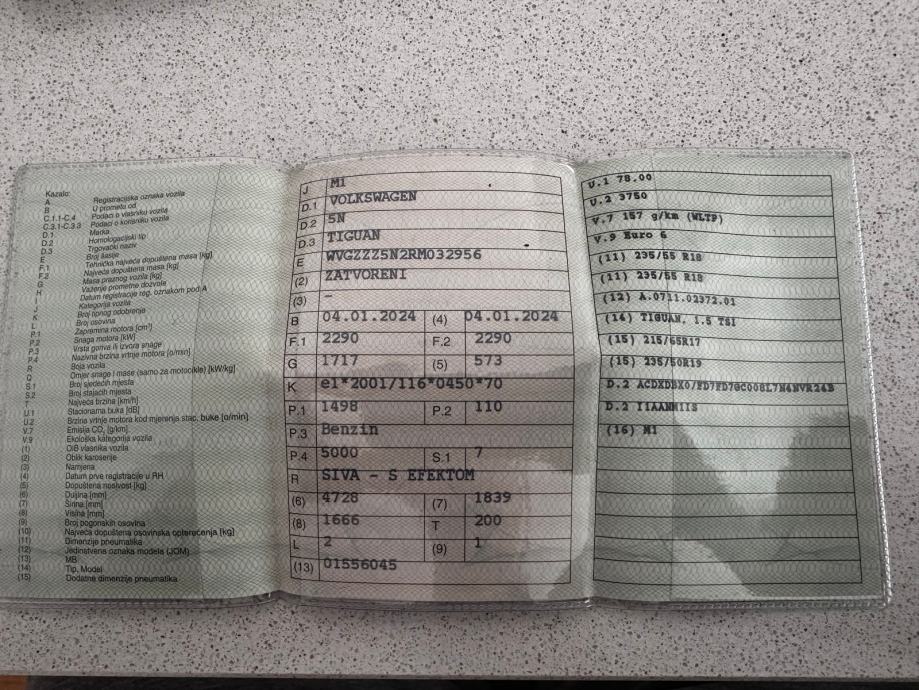 Kazalo:
A Registracijska oznaka vozila
B U prometu od
C.1.1-C.4 Podaci o vlasniku vozila
C.3.1-C.3.3 Podaci o korisniku vozila
D.1 Marka
D.2 Homologacijski tip
D.3 Trgovački naziv
E Broj šasije
F.1 Tehnička najveća dopuštena masa [kg]
F.2 Najveća dopuštena masa [kg]
G Masa praznog vozila [kg]
H Važenje prometne dozvole
I Datum registracije reg. oznakom pod A
J Kategorija vozila
K Broj tipnog odobrenja
L Broj osovina
P.1 Zapremina motora [cm³]
P.2 Snaga motora [kW]
P.3 Vrsta goriva ili izvora snage
P.4 Nazivna brzina vrtnje motora [o/min]
R Boja vozila
Q Omjer snage i mase (samo za motocikle) [kW/kg]
S.1 Broj sjedećih mjesta
S.2 Broj stajaćih mjesta
T Najveća brzina [km/h]
U.1 Stacionarna buka [dB]
U.2 Brzina vrtnje motora kod mjerenja stac. buke [o/min]
V.7 Emisija CO₂ [g/km]
V.9 Ekološka kategorija vozila
(1) OIB vlasnika vozila
(2) Oblik karoserije
(3) Namjena
(4) Datum prve registracije u RH
(5) Dopuštena nosivost [kg]
(6) Duljina [mm]
(7) Širina [mm]
(8) Visina [mm]
(9) Broj pogonskih osovina
(10) Najveća dopuštena osovinska opterećenja [kg]
(11) Dimenzije pneumatika
(12) Jedinstvena oznaka modela (JOM)
(13) MB
(14) Tip, Model
(15) Dodatne dimenzije pneumatika
J M1
D.1 VOLKSWAGEN
D.2 5N
D.3 TIGUAN
E WVGZZZ5N2RM032956
(2) ZATVORENI
(3) –
B 04.01.2024 (4) 04.01.2024
F.1 2290 F.2 2290
G 1717 (5) 573
K e1*2001/116*0450*70
P.1 1498 P.2 110
P.3 Benzin
P.4 5000 S.1 7
R SIVA - S EFEKTOM
(6) 4728 (7) 1839
(8) 1666 T 200
L 2 (9) 1
(13) 01556045
U.1 78.00
U.2 3750
V.7 157 g/km (WLTP)
V.9 Euro 6
(11) 235/55 R18
(11) 235/55 R18
(12) A.0711.02372.01
(14) TIGUAN, 1.5 TSI
(15) 215/65R17
(15) 235/50R19
D.2
D.2
(16) M1